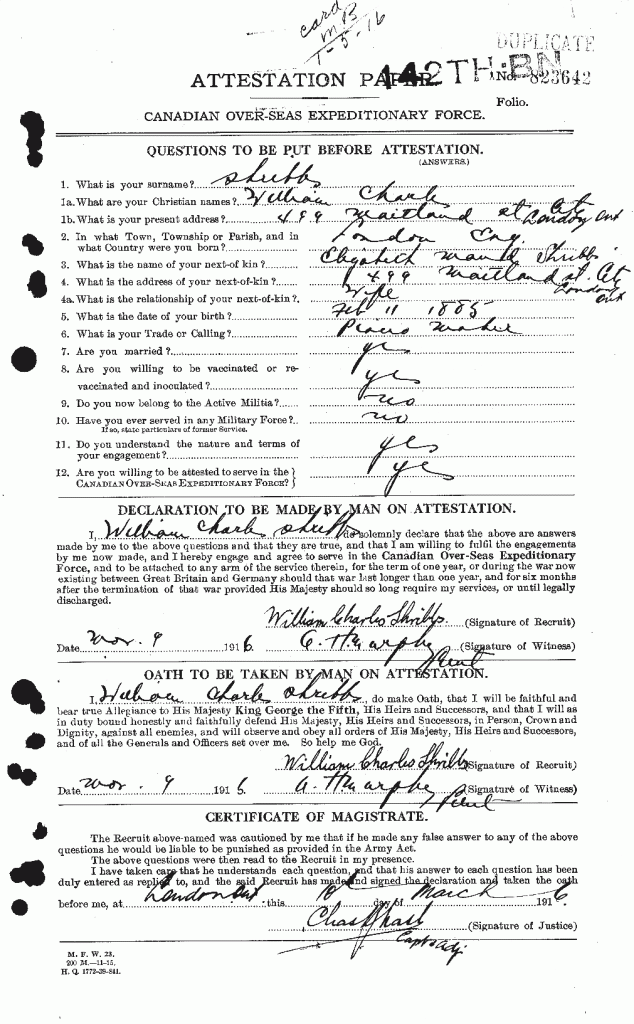 card
MB
1-5-16
DUPLICATE
142TH. BN
ATTESTATION PAPER. No. 823642
Folio.
CANADIAN OVER-SEAS EXPEDITIONARY FORCE.
QUESTIONS TO BE PUT BEFORE ATTESTATION.
(ANSWERS.)
1. What is your surname? Shribbs
1a. What are your Christian names? William Charles
1b. What is your present address? 499 Maitland st London Ont
2. In what Town, Township or Parish, and in
what Country were you born? London Eng
3. What is the name of your next-of-kin? Elizabeth Maud Shribbs
4. What is the address of your next-of-kin? 499 Maitland st. London Ont
4a. What is the relationship of your next-of-kin? Wife
5. What is the date of your birth? Feb 11 1885
6. What is your Trade or Calling? Piano maker
7. Are you married? yes
8. Are you willing to be vaccinated or re-
vaccinated and inoculated? yes
9. Do you now belong to the Active Militia? no
10. Have you ever served in any Military Force? no
If so, state particulars of former Service.
11. Do you understand the nature and terms of
your engagement? yes
12. Are you willing to be attested to serve in the
CANADIAN OVER-SEAS EXPEDITIONARY FORCE? yes
DECLARATION TO BE MADE BY MAN ON ATTESTATION.
I, William Charles Shribbs do solemnly declare that the above are answers
made by me to the above questions and that they are true, and that I am willing to fulfil the engagements
by me now made, and I hereby engage and agree to serve in the Canadian Over-Seas Expeditionary
Force, and to be attached to any arm of the service therein, for the term of one year, or during the war now
existing between Great Britain and Germany should that war last longer than one year, and for six months
after the termination of that war provided His Majesty should so long require my services, or until legally
discharged.
William Charles Shribbs. (Signature of Recruit)
Date Mar. 9 1916. (Signature of Witness)
OATH TO BE TAKEN BY MAN ON ATTESTATION.
I, William Charles Shribbs, do make Oath, that I will be faithful and
bear true Allegiance to His Majesty King George the Fifth, His Heirs and Successors, and that I will as
in duty bound honestly and faithfully defend His Majesty, His Heirs and Successors, in Person, Crown and
Dignity, against all enemies, and will observe and obey all orders of His Majesty, His Heirs and Successors,
and of all the Generals and Officers set over me. So help me God.
William Charles Shribbs (Signature of Recruit)
Date Mar. 9 1916. (Signature of Witness)
CERTIFICATE OF MAGISTRATE.
The Recruit above-named was cautioned by me that if he made any false answer to any of the above
questions he would be liable to be punished as provided in the Army Act.
The above questions were then read to the Recruit in my presence.
I have taken care that he understands each question, and that his answer to each question has been
duly entered as replied to, and the said Recruit has made and signed the declaration and taken the oath
before me, at London Ont this 10 day of March 1916.
(Signature of Justice)
Capt & Adj
M. F. W. 23.
200 M.—11-15.
H. Q. 1772-39-841.